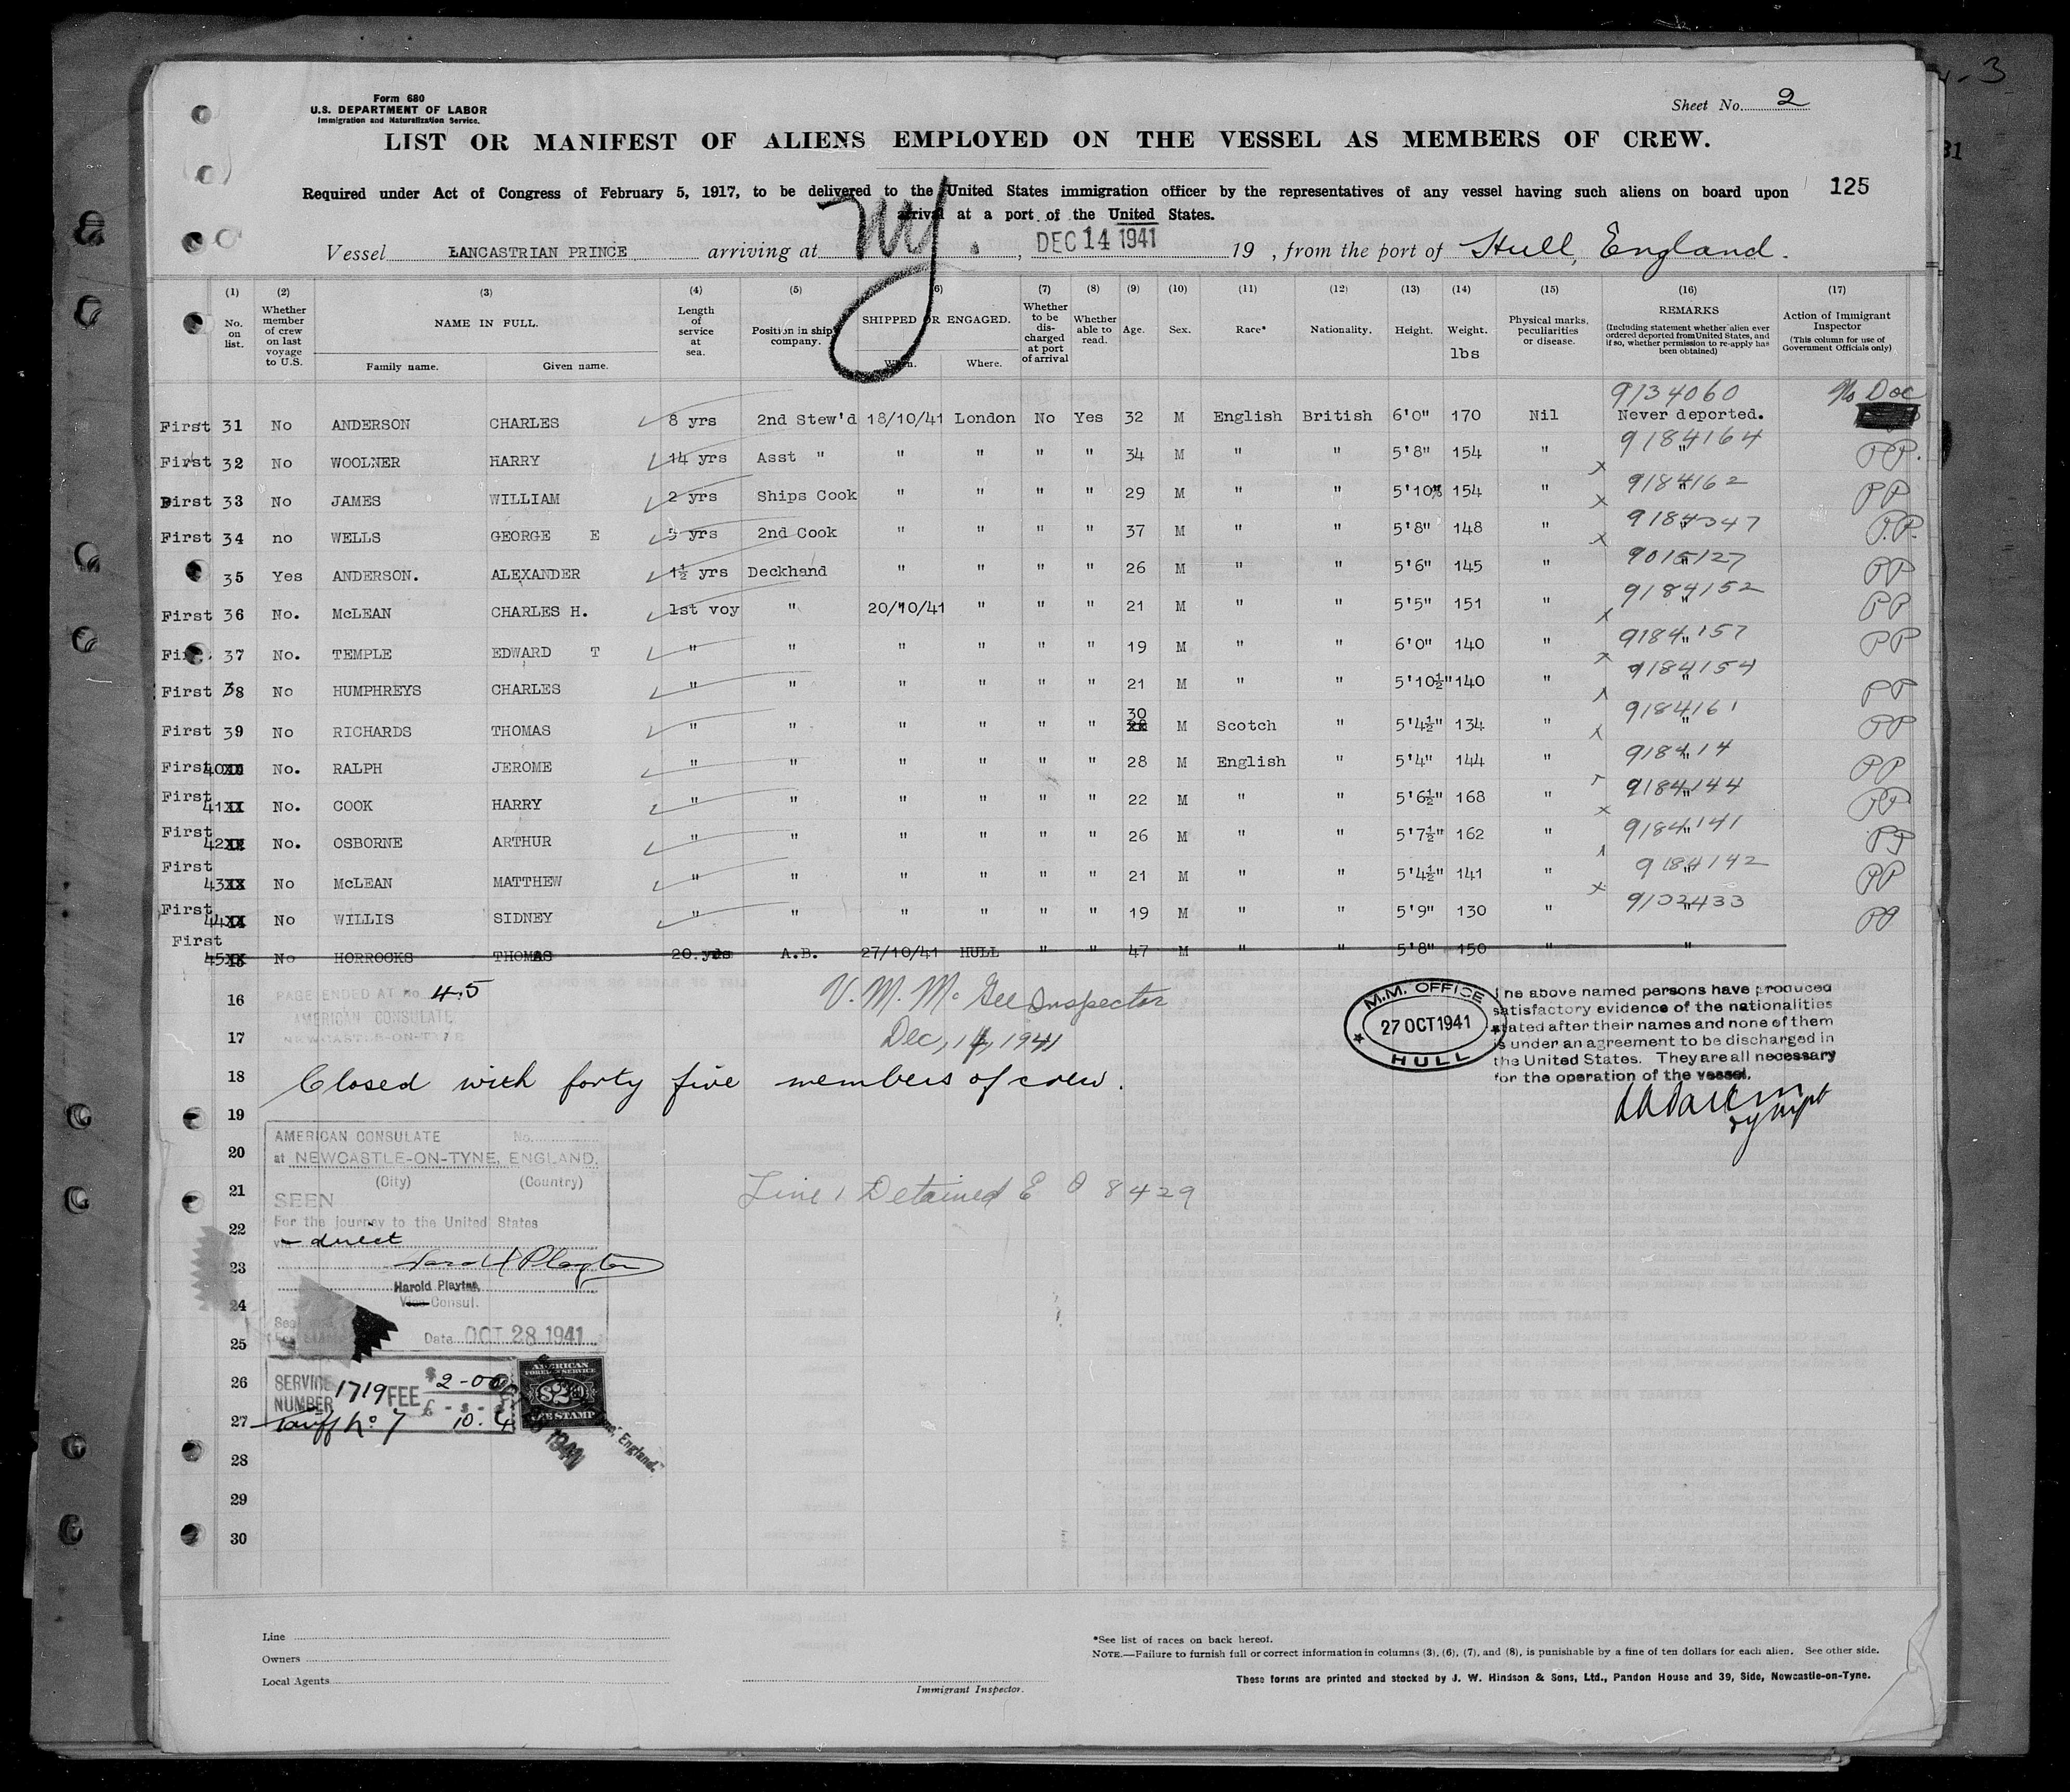 Form 680
U.S. DEPARTMENT OF LABOR
Immigration and Naturalization Service.
Sheet No. 2
LIST OR MANIFEST OF ALIENS EMPLOYED ON THE VESSEL AS MEMBERS OF CREW.
Required under Act of Congress of February 5, 1917, to be delivered to the United States immigration officer by the representatives of any vessel having such aliens on board upon
arrival at a port of the United States.
125
Vessel LANCASTRIAN PRINCE arriving at NY, DEC 14 1941 19 , from the port of Hull, England.
(1) (2) (3) (4) (5) (6) (7) (8) (9) (10) (11) (12) (13) (14) (15) (16) (17)
No. on list. Whether member of crew on last voyage to U.S. NAME IN FULL. Family name. Given name. Length of service at sea. Position in ship's company. SHIPPED OR ENGAGED. When. Where. Whether to be discharged at port of arrival Whether able to read. Age. Sex. Race* Nationality. Height. Weight. lbs Physical marks, peculiarities or disease. REMARKS (Including statement whether alien ever ordered deported from United States, and if so, whether permission to re-apply has been obtained) Action of Immigrant Inspector (This column for use of Government Officials only)
9134060 No Doc
First 31 No ANDERSON CHARLES 8 yrs 2nd Stew'd 18/10/41 London No Yes 32 M English British 6'0" 170 Nil Never deported.
First 32 No WOOLNER HARRY 14 yrs Asst " " " " " 34 M " " 5'8" 154 " 9184164 " PP.
First 33 No JAMES WILLIAM 2 yrs Ships Cook " " " " 29 M " " 5'10½ 154 " 9184162 " PP
First 34 no WELLS GEORGE E 5 yrs 2nd Cook " " " " 37 M " " 5'8" 148 " 9184347 " P.P.
35 Yes ANDERSON. ALEXANDER 1½ yrs Deckhand " " " " 26 M " " 5'6" 145 " 9015127 " PP
First 36 No. McLEAN CHARLES H. 1st voy " 20/10/41 " " " 21 M " " 5'5" 151 " 9184152 " PP
Fi 37 No. TEMPLE EDWARD T " " " " " " 19 M " " 6'0" 140 " 9184157 " PP
First 38 No HUMPHREYS CHARLES " " " " " " 21 M " " 5'10½" 140 " 9184154 " PP
First 39 No RICHARDS THOMAS " " " " " " 30 M Scotch " 5'4½" 134 " 9184161 " PP
First 40 No. RALPH JEROME " " " " " " 28 M English " 5'4" 144 " 918414 " PP
First 41 No. COOK HARRY " " " " " " 22 M " " 5'6½" 168 " 9184144 " PP
First 42 No. OSBORNE ARTHUR " " " " " " 26 M " " 5'7½" 162 " 9184141 " PP
First 43 No McLEAN MATTHEW " " " " " " 21 M " " 5'4½" 141 " 9184142 " PP
First 44 No WILLIS SIDNEY " " " " " " 19 M " " 5'9" 130 " 9102433 " PP
First 45 No HORROCKS THOMAS 20 yrs A.B. 27/10/41 HULL " " 47 M " " 5'8" 150 " "
16 PAGE ENDED AT No. 45
AMERICAN CONSULATE
NEWCASTLE-ON-TYNE
V. M. McGee Inspector
Dec, 14, 1941
M.M. OFFICE
27 OCT 1941
HULL
The above named persons have produced
satisfactory evidence of the nationalities
stated after their names and none of them
is under an agreement to be discharged in
the United States. They are all necessary
for the operation of the vessel.
17
18 Closed with forty five members of crew.
19
AMERICAN CONSULATE No.
20 at NEWCASTLE-ON-TYNE, ENGLAND.
(City) (Country)
21 SEEN
Line 1 Detained E O 8429
22 For the journey to the United States
via direct
23 Harold Playter
Harold Playter,
24 Vice Consul.
25 Date OCT 28 1941
26 SERVICE NUMBER 1719 FEE $2-00
£ - s -
27 Tariff No 7 10.4
AMERICAN
FOREIGN SERVICE
$2
FEE STAMP
1941
England.
28
29
30
Line
Owners
Local Agents
Immigrant Inspector.
*See list of races on back hereof.
NOTE.—Failure to furnish full or correct information in columns (3), (6), (7), and (8), is punishable by a fine of ten dollars for each alien. See other side.
These forms are printed and stocked by J. W. Hindson & Sons, Ltd., Pandon House and 39, Side, Newcastle-on-Tyne.